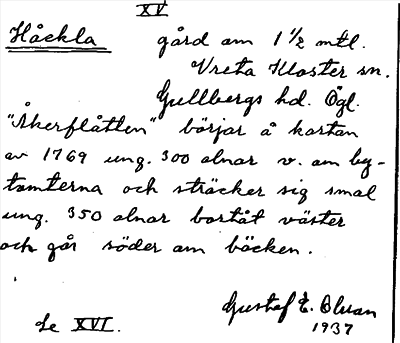 XV
Håckla gård om 1 1/2 mtl.
Vreta Kloster sn.
Gullbergs hd. Ögl.
"Åkerflåtten" börjar å kartan
av 1769 ung. 300 alnar v. om by-
tomterna och sträcker sig smal
ung. 350 alnar bortåt väster
och går söder om bäcken.
Gustaf E. Blman
1937
Se XVI.